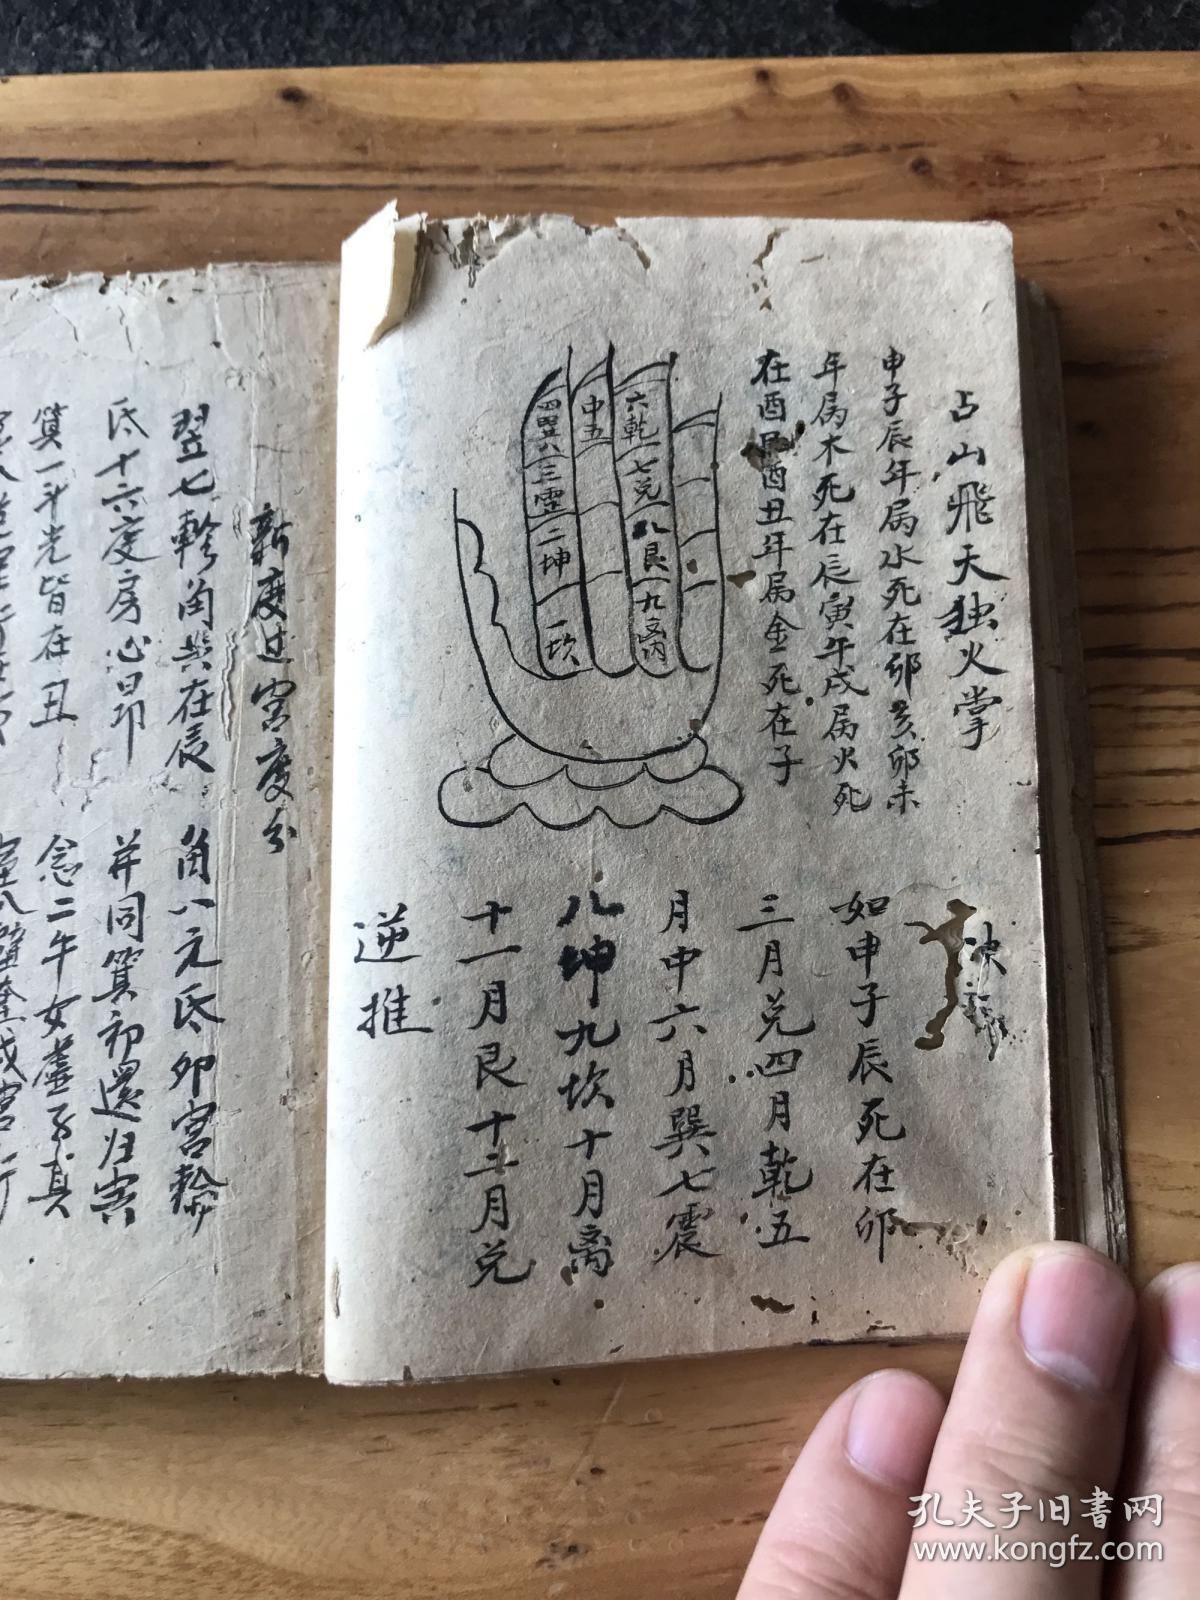 占山飛天独火掌
申子辰年属水死在卯亥卯未
年属木死在辰寅午戌属火死
在酉巳酉丑年属金死在子
四巽
三震
二坤
一坎
中五
六乾
七兑
八艮
九离
如申子辰死在卯
三月兑四月乾五
月中六月巽七震
八坤九坎十月离
十一月艮十二月兑
逆推
新度过宫度分
翌七軫角共在辰 角八元氐卯宫軫
氐十六度房心昴 并同箕初還归寅
箕一斗光皆在丑 念二午女虚子真
孔夫子旧书网
www.kongfz.com